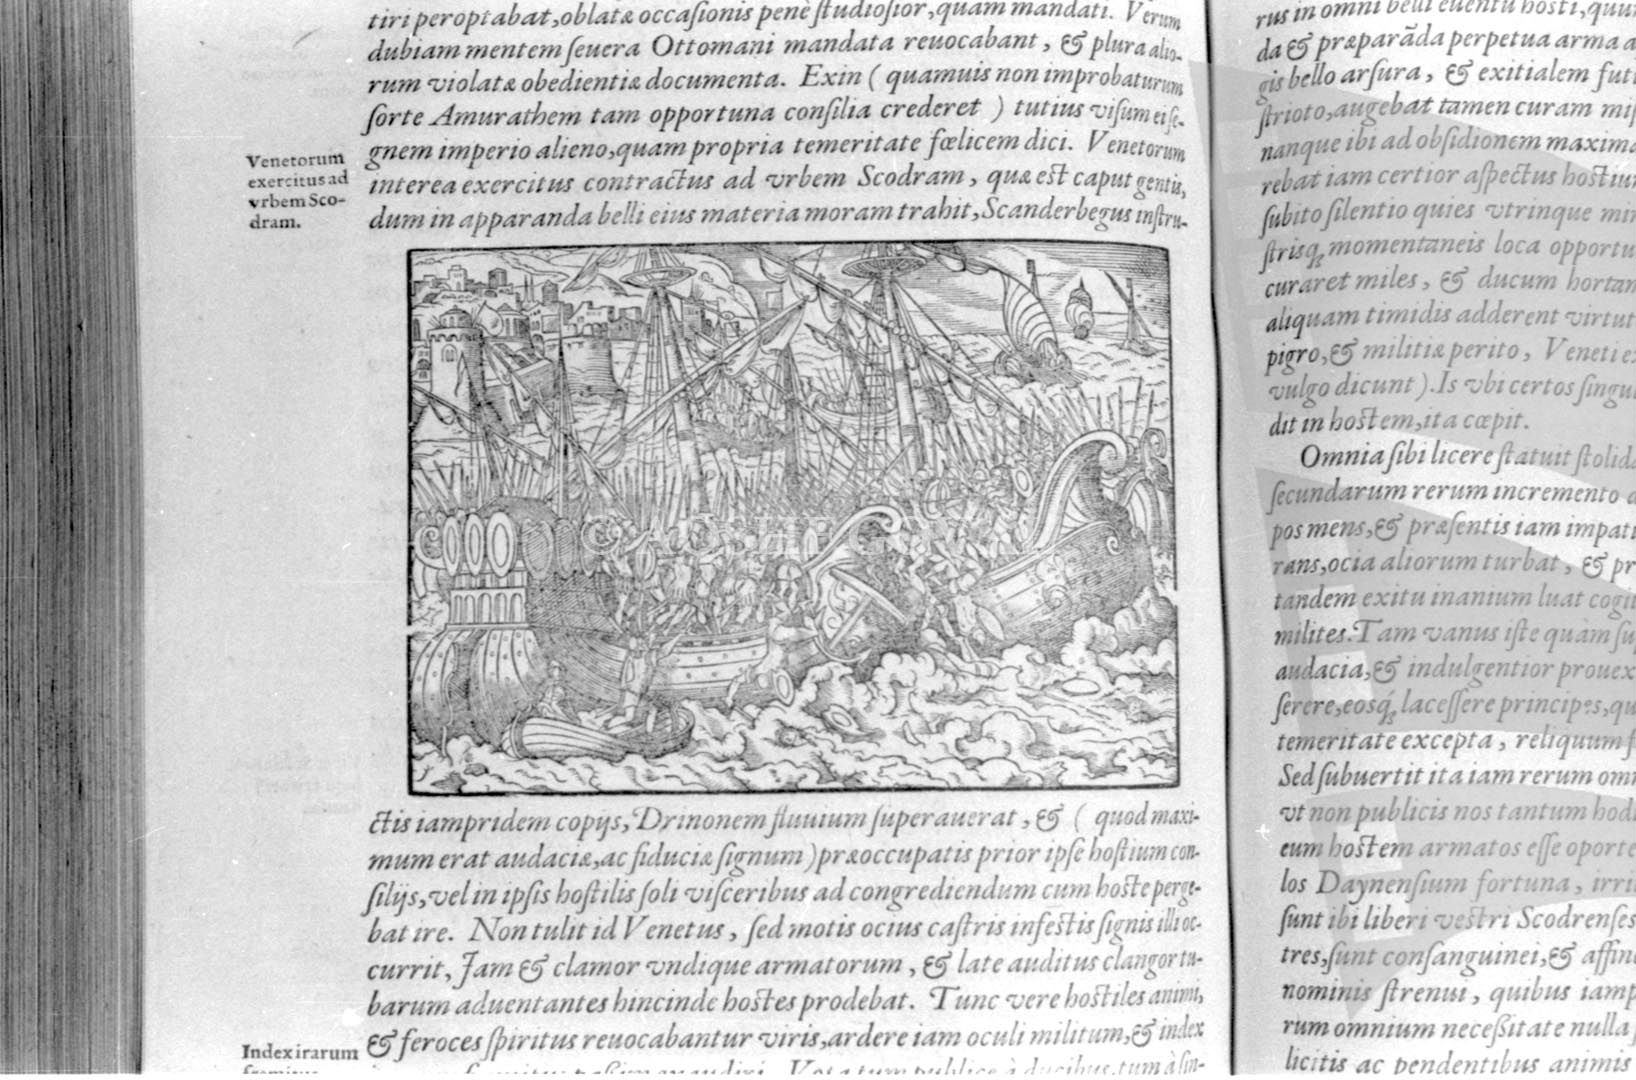 tiri peroptabat, oblatæ occaſionis penè ſtudioſior, quam mandati. Verum
dubiam mentem ſeuera Ottomani mandata reuocabant, & plura alio-
rum violatæ obedientiæ documenta. Exin ( quamuis non improbaturum
ſorte Amurathem tam opportuna conſilia crederet ) tutius viſum ei ſe-
gnem imperio alieno, quam propria temeritate fœlicem dici. Venetorum
interea exercitus contractus ad vrbem Scodram, quæ est caput gentis,
dum in apparanda belli eius materia moram trahit, Scanderbegus inſtru-
Venetorum
exercitus ad
vrbem Sco-
dram.
ctis iampridem copijs, Drinonem fluuium ſuperauerat, & ( quod maxi-
mum erat audaciæ, ac fiduciæ ſignum ) præoccupatis prior ipſe hoſtium con-
ſilijs, vel in ipſis hoſtilis ſoli viſceribus ad congrediendum cum hoste perge-
bat ire. Non tulit id Venetus, ſed motis ocius caſtris infeſtis ſignis illi oc-
currit, Jam & clamor vndique armatorum, & late auditus clangor tu-
barum aduentantes hincinde hostes prodebat. Tunc vere hoſtiles animi,
& feroces ſpiritus reuocabantur viris, ardere iam oculi militum, & index
Index irarum
rus in omni belli euentu hosti,
da & præparãda perpetua arma
gis bello arſura, & exitialem
ſtrioto, augebat tamen curam
nanque ibi ad obſidionem
rebat iam certior aſpectus
ſubito ſilentio quies vtrinque
ſtrisq; momentaneis loca
curaret miles, & ducum
aliquam timidis adderent
pigro, & militiæ perito, Veneti
vulgo dicunt ). Is vbi certos
dit in hostem, ita cœpit.
Omnia ſibi licere ſtatuit
ſecundarum rerum incremento
pos mens, & præſentis iam
rans, ocia aliorum turbat, &
tandem exitu inanium luat
milites. Tam vanus iſte quàm
audacia, & indulgentior
ſerere, eosq́; laceſſere principes,
temeritate excepta, reliquum
Sed ſubuertit ita iam rerum
vt non publicis nos tantum
eum hoſtem armatos eſſe
los Daynenſium fortuna,
ſunt ibi liberi veſtri Scodrenſes
tres, ſunt conſanguinei, &
nominis ſtrenui, quibus
rum omnium neceßitate nulla
licitis ac pendentibus animis